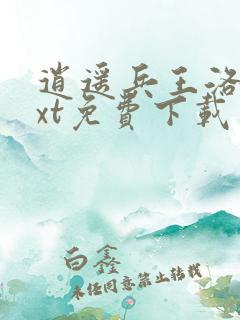 逍遥兵王洛
xt免费下载
白鑫
未经同意禁止转载